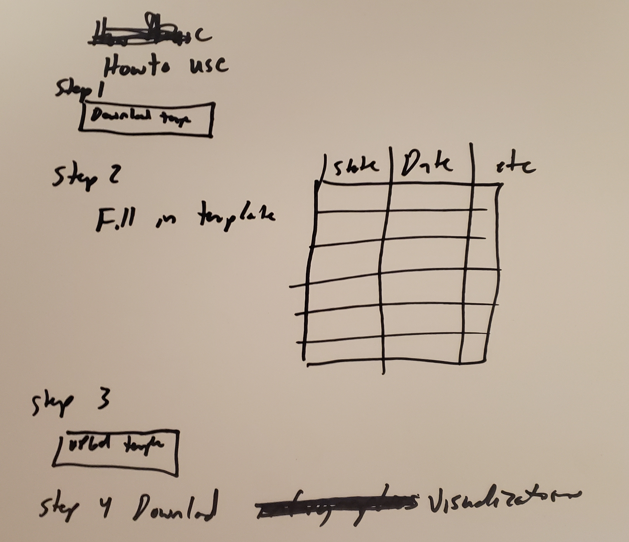 How to use
Step 1
Download temp
Step 2
Fill in template
State Date etc
Step 3
upload temple
Step 4 Download Visualization